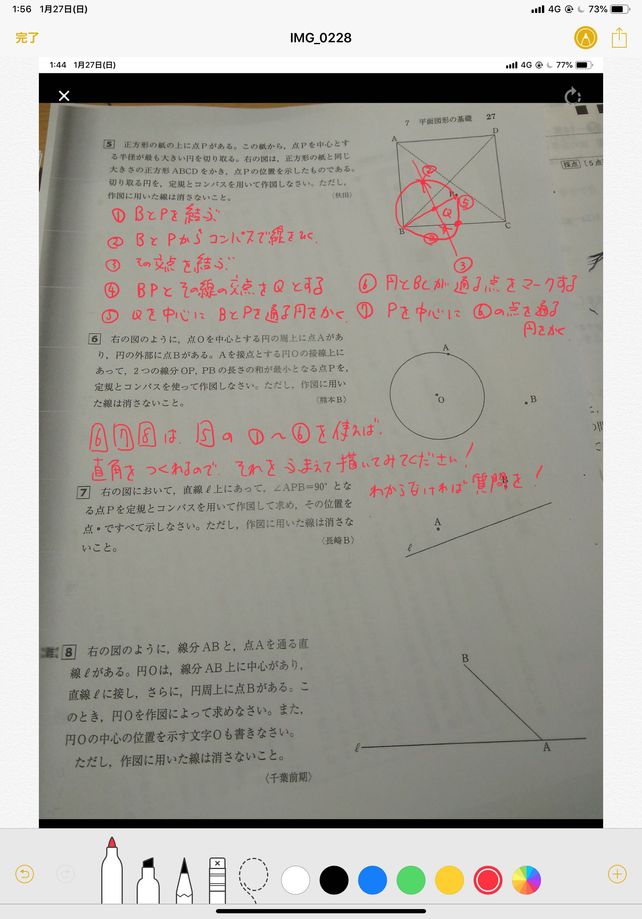 1:56 1月27日(日)
4G 73%
完了
IMG_0228
1:44 1月27日(日)
4G 77%
7 平面図形の基礎 27
5 正方形の紙の上に点Pがある。この紙から，点Pを中心とす
る半径が最も大きい円を切り取る。右の図は，正方形の紙と同じ
大きさの正方形ABCDをかき，点Pの位置を示したものである。
切り取る円を，定規とコンパスを用いて作図しなさい。ただし，
作図に用いた線は消さないこと。
〈秋田〉
採点 (5点
A
D
B
C
P
Q
②
⑤
③
① BとPを結ぶ
② BとPからコンパスで線をひく
③ その交点を結ぶ
④ BPとその線の交点をQとする
⑤ Qを中心にBとPを通る円をかく
⑥ 円とBCが通る点をマークする
⑦ Pを中心に⑥の点を通る
円をかく
6 右の図のように，点Oを中心とする円の周上に点Aがあ
り，円の外部に点Bがある。Aを接点とする円Oの接線上に
あって，2つの線分OP，PBの長さの和が最小となる点Pを，
定規とコンパスを使って作図しなさい。ただし，作図に用い
た線は消さないこと。
〈熊本B〉
A
O
B
6 7 8 は、5の①〜⑥を使えば、
直角をつくれるので、それをふまえて描いてみてください！
わからなければ質問を！
7 右の図において，直線ℓ上にあって，∠APB＝90°とな
る点Pを定規とコンパスを用いて作図して求め，その位置を
点・ですべて示しなさい。ただし，作図に用いた線は消さな
いこと。
〈長崎B〉
B
A
ℓ
8 右の図のように，線分ABと，点Aを通る直
線ℓがある。円Oは，線分AB上に中心があり，
直線ℓに接し，さらに，円周上に点Bがある。こ
のとき，円Oを作図によって求めなさい。また，
円Oの中心の位置を示す文字Oも書きなさい。
ただし，作図に用いた線は消さないこと。
〈千葉前期〉
B
ℓ
A